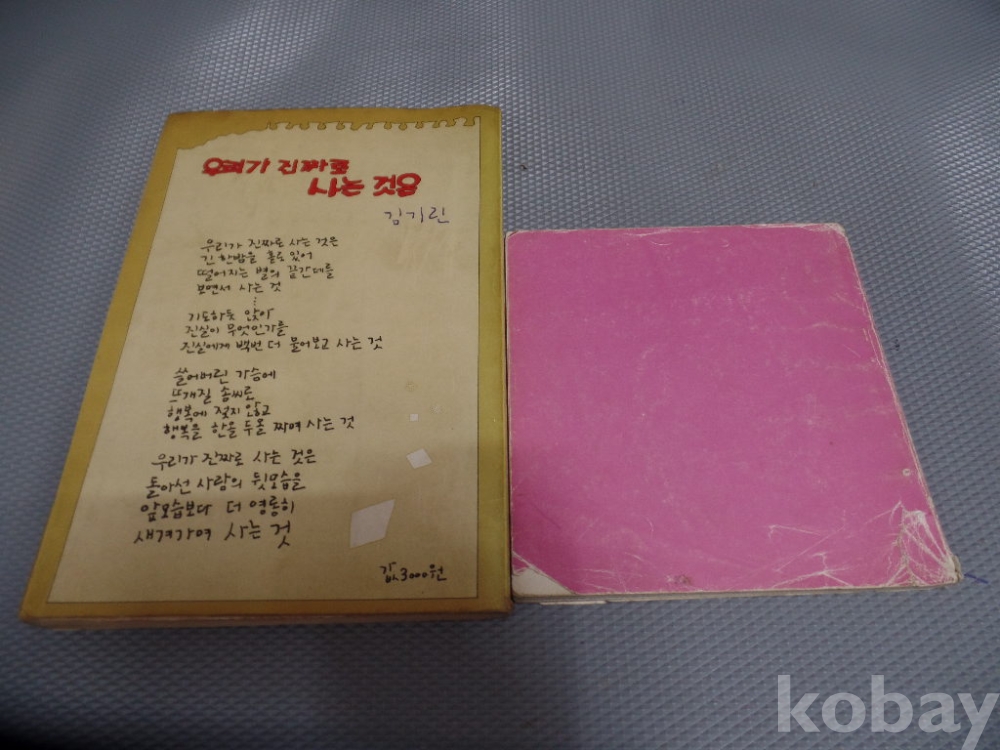 우리가 진짜로
사는 것은
김기린
우리가 진짜로 사는 것은
긴 한밤을 홀로 있어
떨어지는 별의 끝간데를
보면서 사는 것
⋮
기도하듯 앉아
진실이 무엇인가를
진실에게 백번 더 물어보고 사는 것
쓸어버린 가슴에
뜨개질 솜씨로
행복에 젖지 않고
행복을 한올 두올 짜며 사는 것
우리가 진짜로 사는 것은
돌아선 사람의 뒷모습을
앞모습보다 더 영롱히
새겨가며 사는 것
값 3000원
kobay